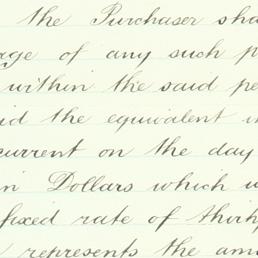 the Purchaser sha
age of any such p
within the said pe
id the equivalent i
current on the day
in Dollars which w
fixed rate of thirty
represents the am